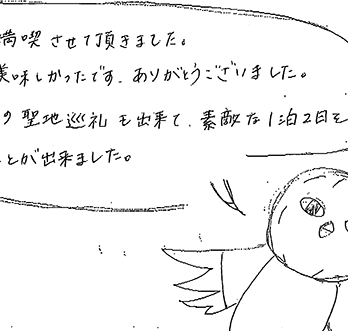 満喫させて頂きました。
美味しかったです。ありがとうございました。
の聖地巡礼も出来て、素敵な1泊2日を
とが出来ました。